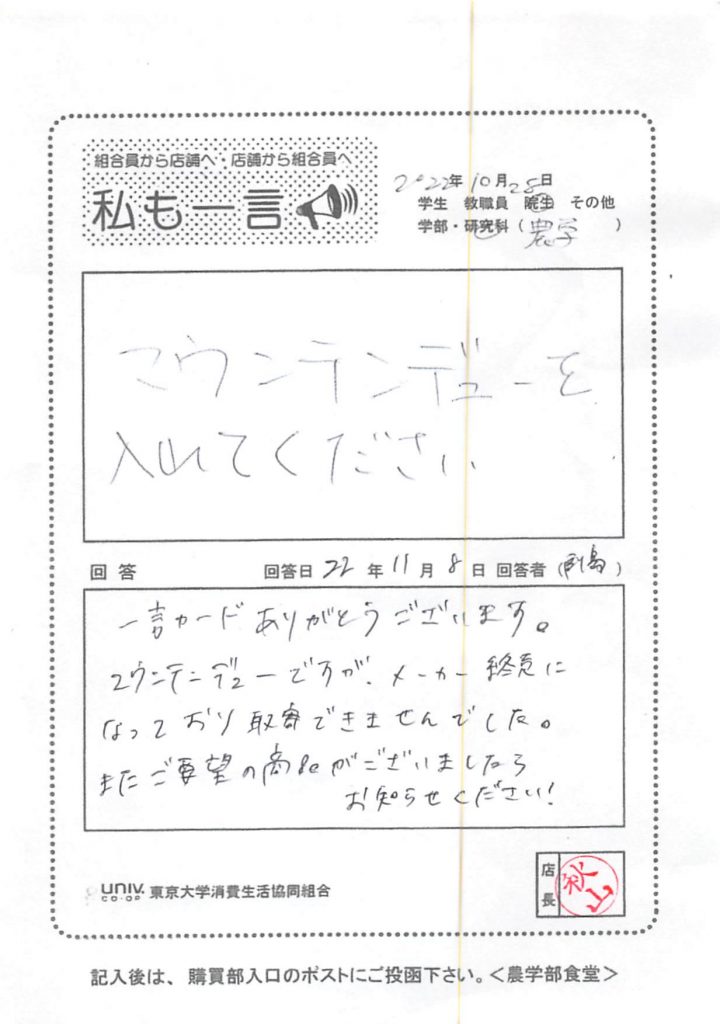 組合員から店舗へ・店舗から組合員へ
私も一言
2022年10月28日
学生 教職員 院生 その他
学部・研究科(農学)
マウンテンデューを
入れてください
回答 回答日 22年11月8日 回答者()
一言カードありがとうございます。
マウンテンデューですが、メーカー終売に
なっており取寄できませんでした。
またご要望の商品がございましたら
お知らせください!
UNIV. CO-OP 東京大学消費生活協同組合
店長 秋山
記入後は、購買部入口のポストにご投函下さい。<農学部食堂>